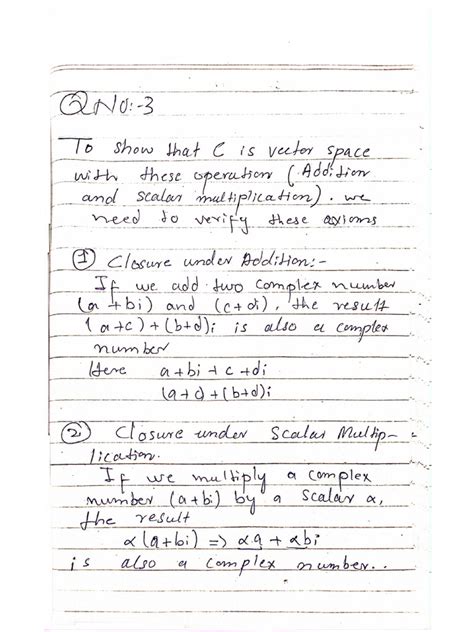 QNO:-3
To show that C is vector space
with these operation (Addition
and scalar multiplication). we
need to verify these axioms
① Closure under Addition:-
If we add two complex number
(a+bi) and (c+di), the result
(a+c)+(b+d)i is also a complex
number
Here a+bi+c+di
(a+c)+(b+d)i
② Closure under Scalar Multip-
lication.
If we multiply a complex
number (a+bi) by a scalar α,
the result
α(a+bi) => αa + αbi
is also a complex number..